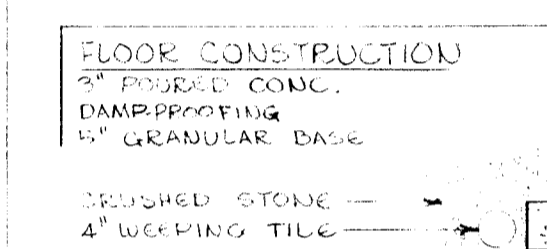 FLOOR CONSTRUCTION
3" POURED CONC.
DAMP-PROOFING
5" GRANULAR BASE
CRUSHED STONE
4" WEEPING TILE